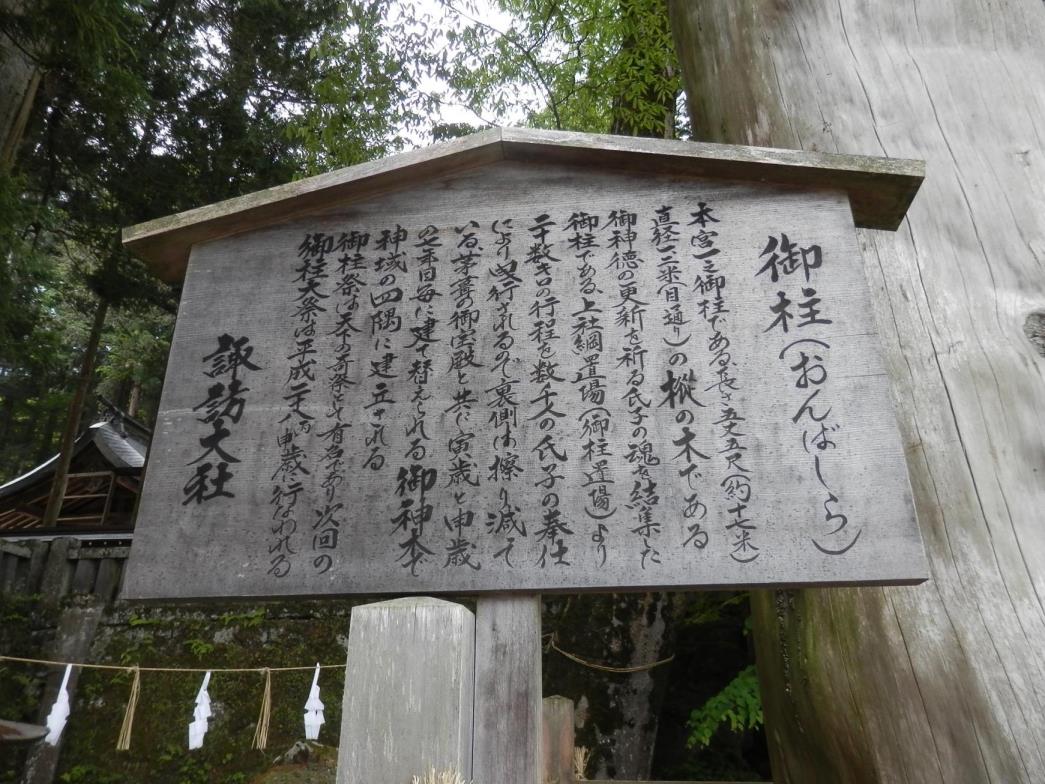 御柱(おんばしら)
本宮一之御柱である、長さ五丈五尺(約十七米)
直径一、二米(目通り)の樅の木である
御神徳の更新を祈る氏子の魂を結集した
御柱である、上社綱置場(御柱置場)より
二十数キロの行程を数千人の氏子の奉仕
により曳行されるので裏側は擦り減って
いる、茅葺の御宝殿と共に寅歳と申歳
の七年目毎に建て替えられる御神木で
神域の四隅に建立される
御柱祭は天下の奇祭として有名であり次回の
御柱大祭は平成二十八年申歳に行なわれる
諏訪大社